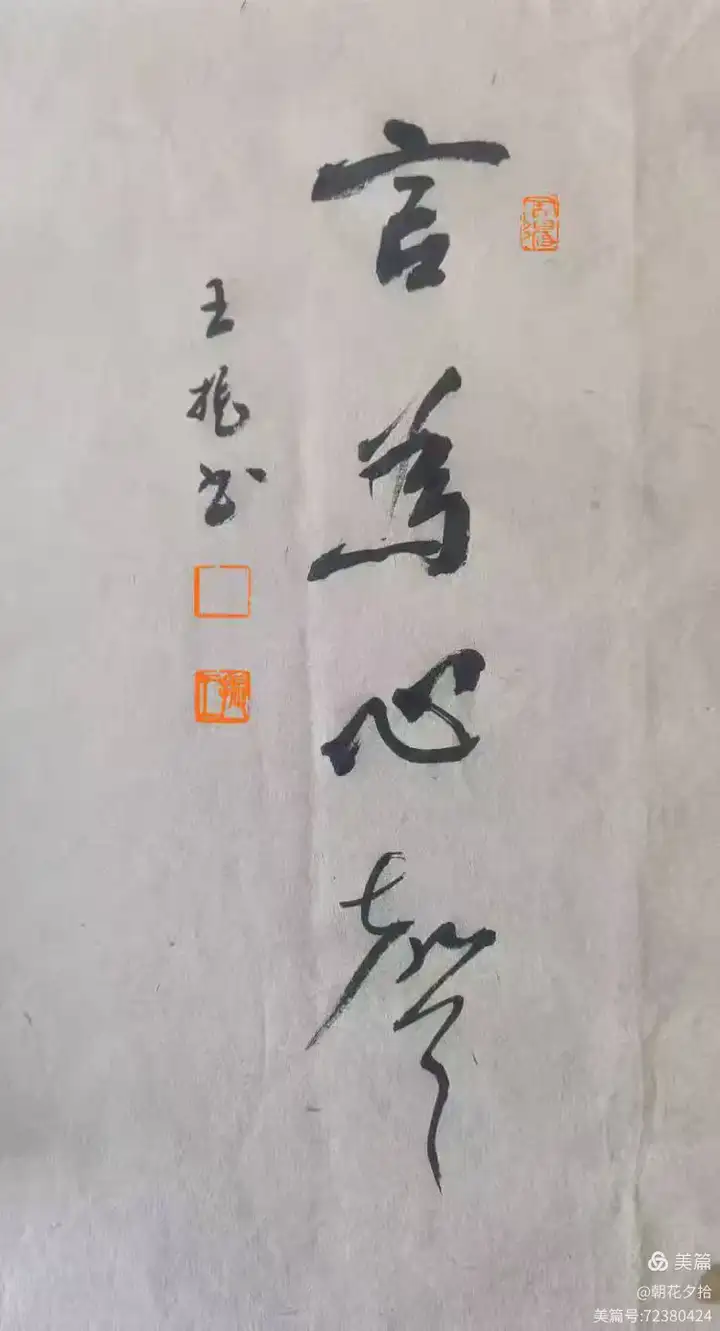 言為心聲
王振书
美篇
@朝花夕拾
美篇号:72380424